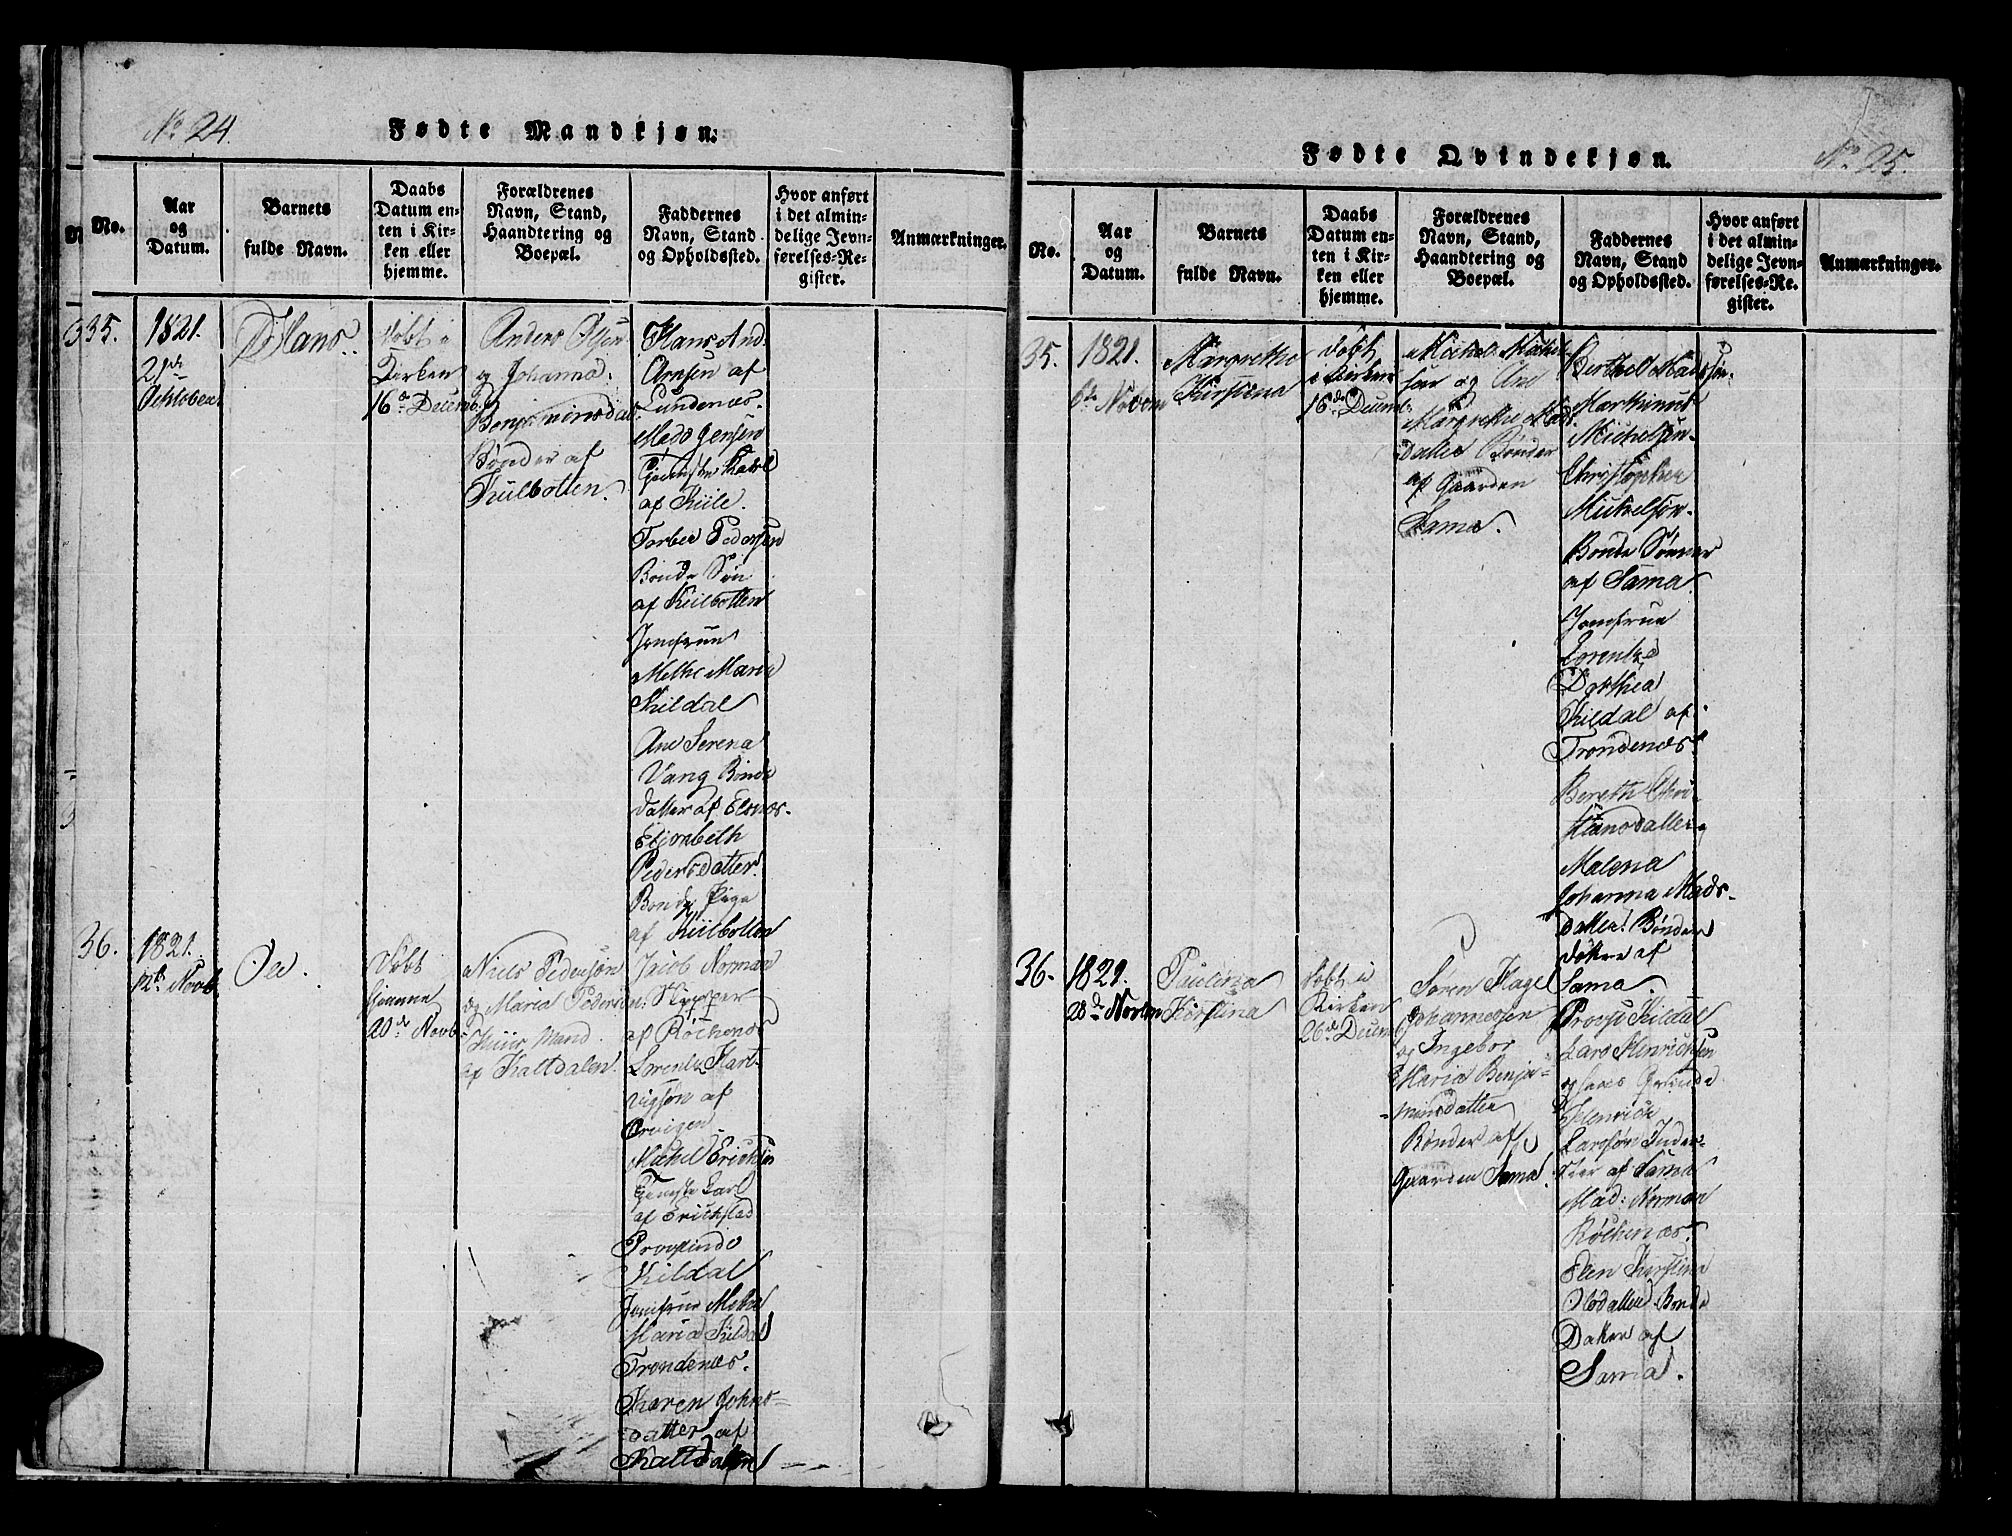 No 24.
Fødte Mandkjøn.
No.
Aar
og
Datum.
Barnets
fulde Navn.
Daabs
Datum en-
ten i Kir-
ken eller
hjemme.
Forældrenes
Navn, Stand,
Haandtering og
Boepæl.
Faddernes
Navn, Stand
og Opholdssted.
Hvor anført
i det almin-
delige Jevn-
førelses-Re-
gister.
Anmærkninger.
35.
1821.
2de
Octtober
Hans.
døbt i
Kirken
16de Decemb.
Anders Olsen
og Johanna
Benjaminsdat.
Bønder af
Kiilbotten.
Hans And.
Arnsen af
Lundenæs.
Mads Jensen
Tjeneste Karl
af Kiile.
Torber Pedersen
Bonde Søn
af Kiilbotten
Jomfrue
Methe Maria
Kildal
Ane Serena
Vang Bonde
datter af Elsnæs.
Elisabeth
Pedersdatter
Bonde Pige
af Kiilbotten
36.
1821.
12te Novb.
Ole.
Døbt
hjemme
20de Novb.
Niels Pedersøn
og Maria Peders
Huus Mand
af Kaltdalen.
Jacob Norman
Skipper
af Røckenæs
Lorentz Hart-
vigsøn af
Ervigen.
Michel Erichsen
Tjeneste Karl
af Erichstad
Provstinde
Kildal
Jomfrue Methe
Maria Kildal
Trondenæs.
Karen Johns-
datter af
Kaltdalen
No 25.
Fødte Qvindekjøn.
No.
Aar
og
Datum.
Barnets
fulde Navn.
Daabs
Datum en-
ten i Kir-
ken eller
hjemme.
Forældrenes
Navn, Stand,
Haandtering og
Boepæl.
Faddernes
Navn, Stand
og Opholdssted.
Hvor anført
i det almin-
delige Jevn-
førelses-Re-
gister.
Anmærkninger.
35.
1821.
6te Novem
Margrethe
Kirstina
døbt
i Kirken
16de Decemb.
Michel Michel
søn og Ane
Margrethe Mads
datter Bønder
af Gaarden
Sama.
Berthel Madsen
Marthinus
Michelsen.
Christopher
Michelsøn.
Bonde Sønner
af Sama
Jomfrue
Lorentze
Dorthea
Kildal af
Trondenæs.
Bereth Chri-
stiansdatter
Malena
Johanna Mads-
datter. Bønder
døttre af
Sama.
36.
1821.
28de Novem
Paulina
Kirstina
døbt i
Kirken
26de Decem
Søren Hagel
Johannesen
og Ingebor
Maria Benja-
minsdatter
Bønder af
Gaarden Sama.
Provst Kildal
Lars Henrichsen
og hans Qvinde
Henrich
Larsøn Inder-
ster af Sama
Mad: Norman
Røckenæs.
Elen Kirstina
Olsdatter Bonde
Datter af
Sama.